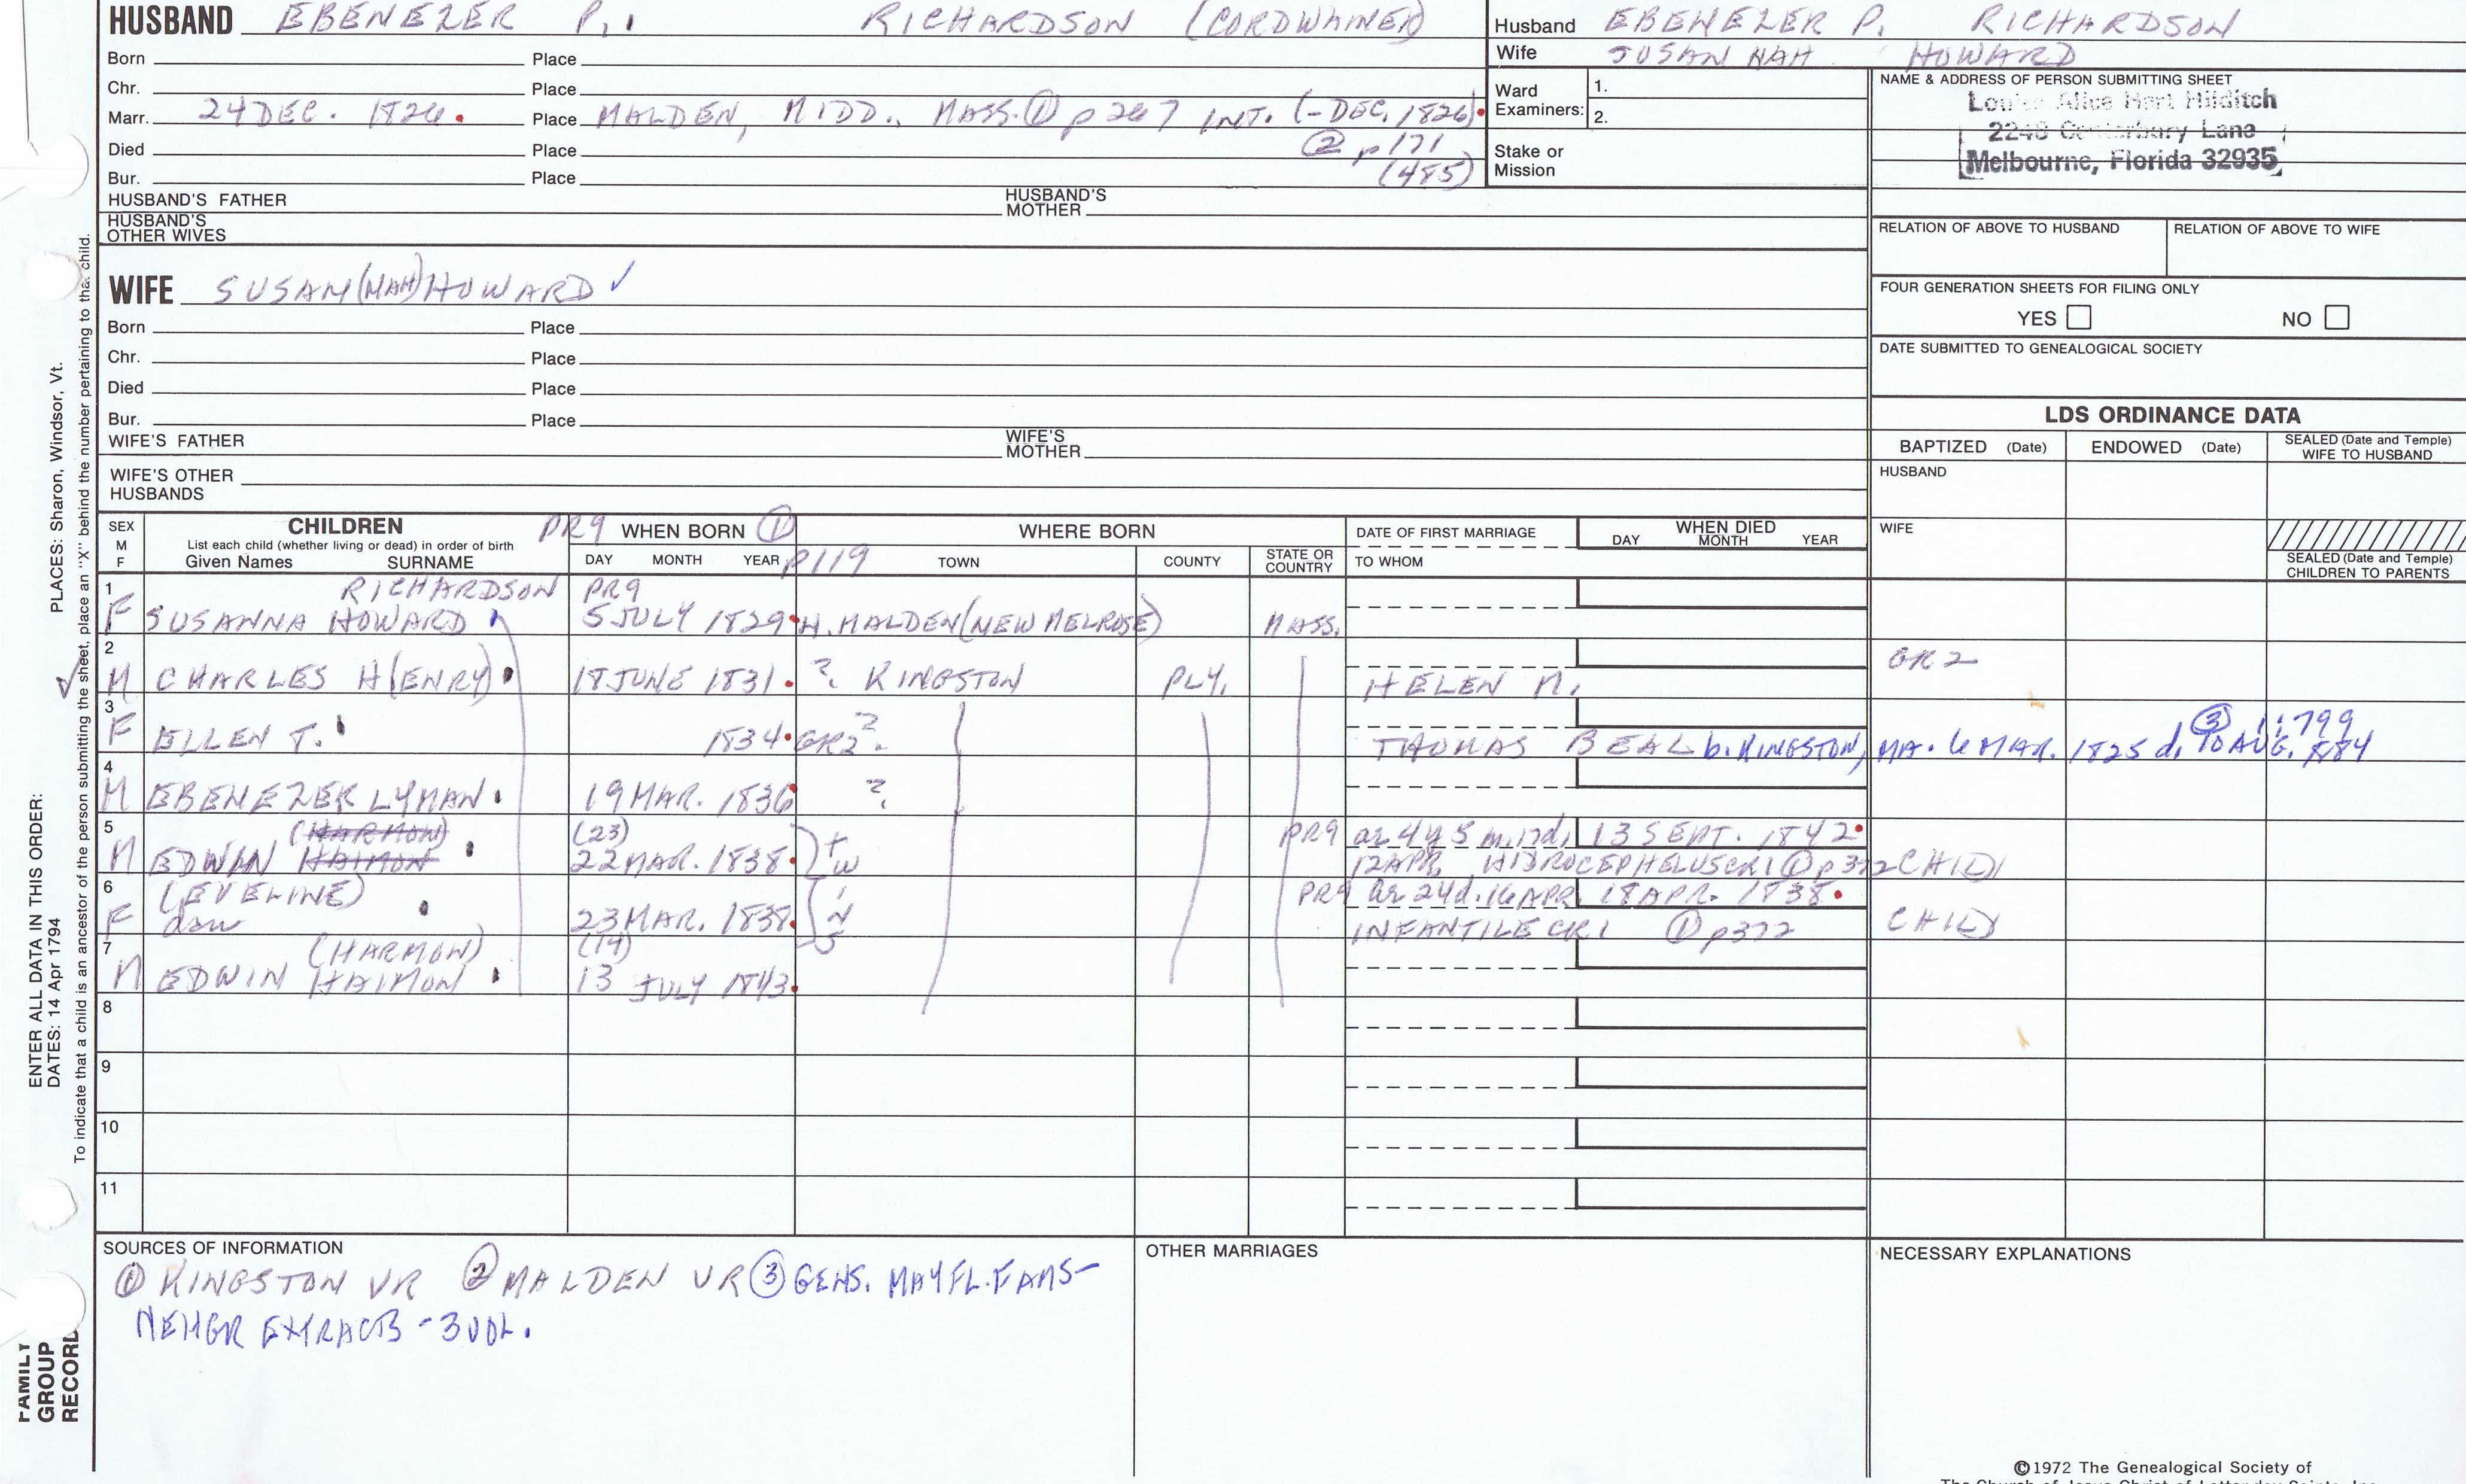 HUSBAND EBENEZER P. RICHARDSON (CORDWAINER)
Born Place
Chr. Place
Marr. 24 DEC. 1826. Place MALDEN, MIDD., MASS. ① p 267 INT. (-DEC. 1826).
② p 171
Died Place
(485)
Bur. Place
HUSBAND'S FATHER HUSBAND'S MOTHER
HUSBAND'S OTHER WIVES
Husband EBENEZER P. RICHARDSON
Wife SUSAN NAH HOWARD
Ward Examiners: 1.
2.
Stake or Mission
NAME & ADDRESS OF PERSON SUBMITTING SHEET
Louise Alice Hart Hilditch
2248 Canterbury Lane
Melbourne, Florida 32935
RELATION OF ABOVE TO HUSBAND RELATION OF ABOVE TO WIFE
FOUR GENERATION SHEETS FOR FILING ONLY
YES NO
DATE SUBMITTED TO GENEALOGICAL SOCIETY
WIFE SUSAN(NAH) HOWARD ✓
Born Place
Chr. Place
Died Place
Bur. Place
WIFE'S FATHER WIFE'S MOTHER
WIFE'S OTHER HUSBANDS
LDS ORDINANCE DATA
BAPTIZED (Date) ENDOWED (Date) SEALED (Date and Temple) WIFE TO HUSBAND
HUSBAND
WIFE
SEALED (Date and Temple) CHILDREN TO PARENTS
SEX M F
CHILDREN PR9 WHEN BORN ① WHERE BORN DATE OF FIRST MARRIAGE WHEN DIED
List each child (whether living or dead) in order of birth
Given Names SURNAME DAY MONTH YEAR P119 TOWN COUNTY STATE OR COUNTRY TO WHOM DAY MONTH YEAR
1 RICHARDSON PR9
F SUSANNA HOWARD 5 JULY 1829 MALDEN (NEW MELROSE) MASS.
2
M CHARLES H(ENRY) 18 JUNE 1831. ? KINGSTON PLY. HELEN M. GR 2
3
F ELLEN T. 1834 GR2 ? THOMAS BEAL b. KINGSTON, MA. 6 MAR. 1825 d. 10 AUG. 1884 ③ 1:799
4
M EBENEZER LYMAN 19 MAR. 1836 ?
5 (HARMON) (23) PR9 ae 4y 5m. 17d. 13 SEPT. 1842
M EDWIN HAIMON 22 MAR. 1838. twins 12 APR. HIDROCEPHELUS CR1 ① p 372 CHILD
6 (EVELINE) PR9 ae 24d. 16 APR 18 APR. 1838.
F dau 23 MAR. 1838. INFANTILE CR1 ① p372 CHILD
7 (HARMON) (14)
M EDWIN HAIMON 13 JULY 1843.
8
9
10
11
SOURCES OF INFORMATION
① KINGSTON VR ② MALDEN VR ③ GENS. MAYFL. FAMS-
NEHGR EXTRACTS - 3 VOL.
OTHER MARRIAGES
NECESSARY EXPLANATIONS
©1972 The Genealogical Society of
ENTER ALL DATA IN THIS ORDER:
DATES: 14 Apr 1794 PLACES: Sharon, Windsor, Vt.
To indicate that a child is an ancestor of the person submitting the sheet, place an "X" behind the number pertaining to that child.
FAMILY
GROUP
RECORD